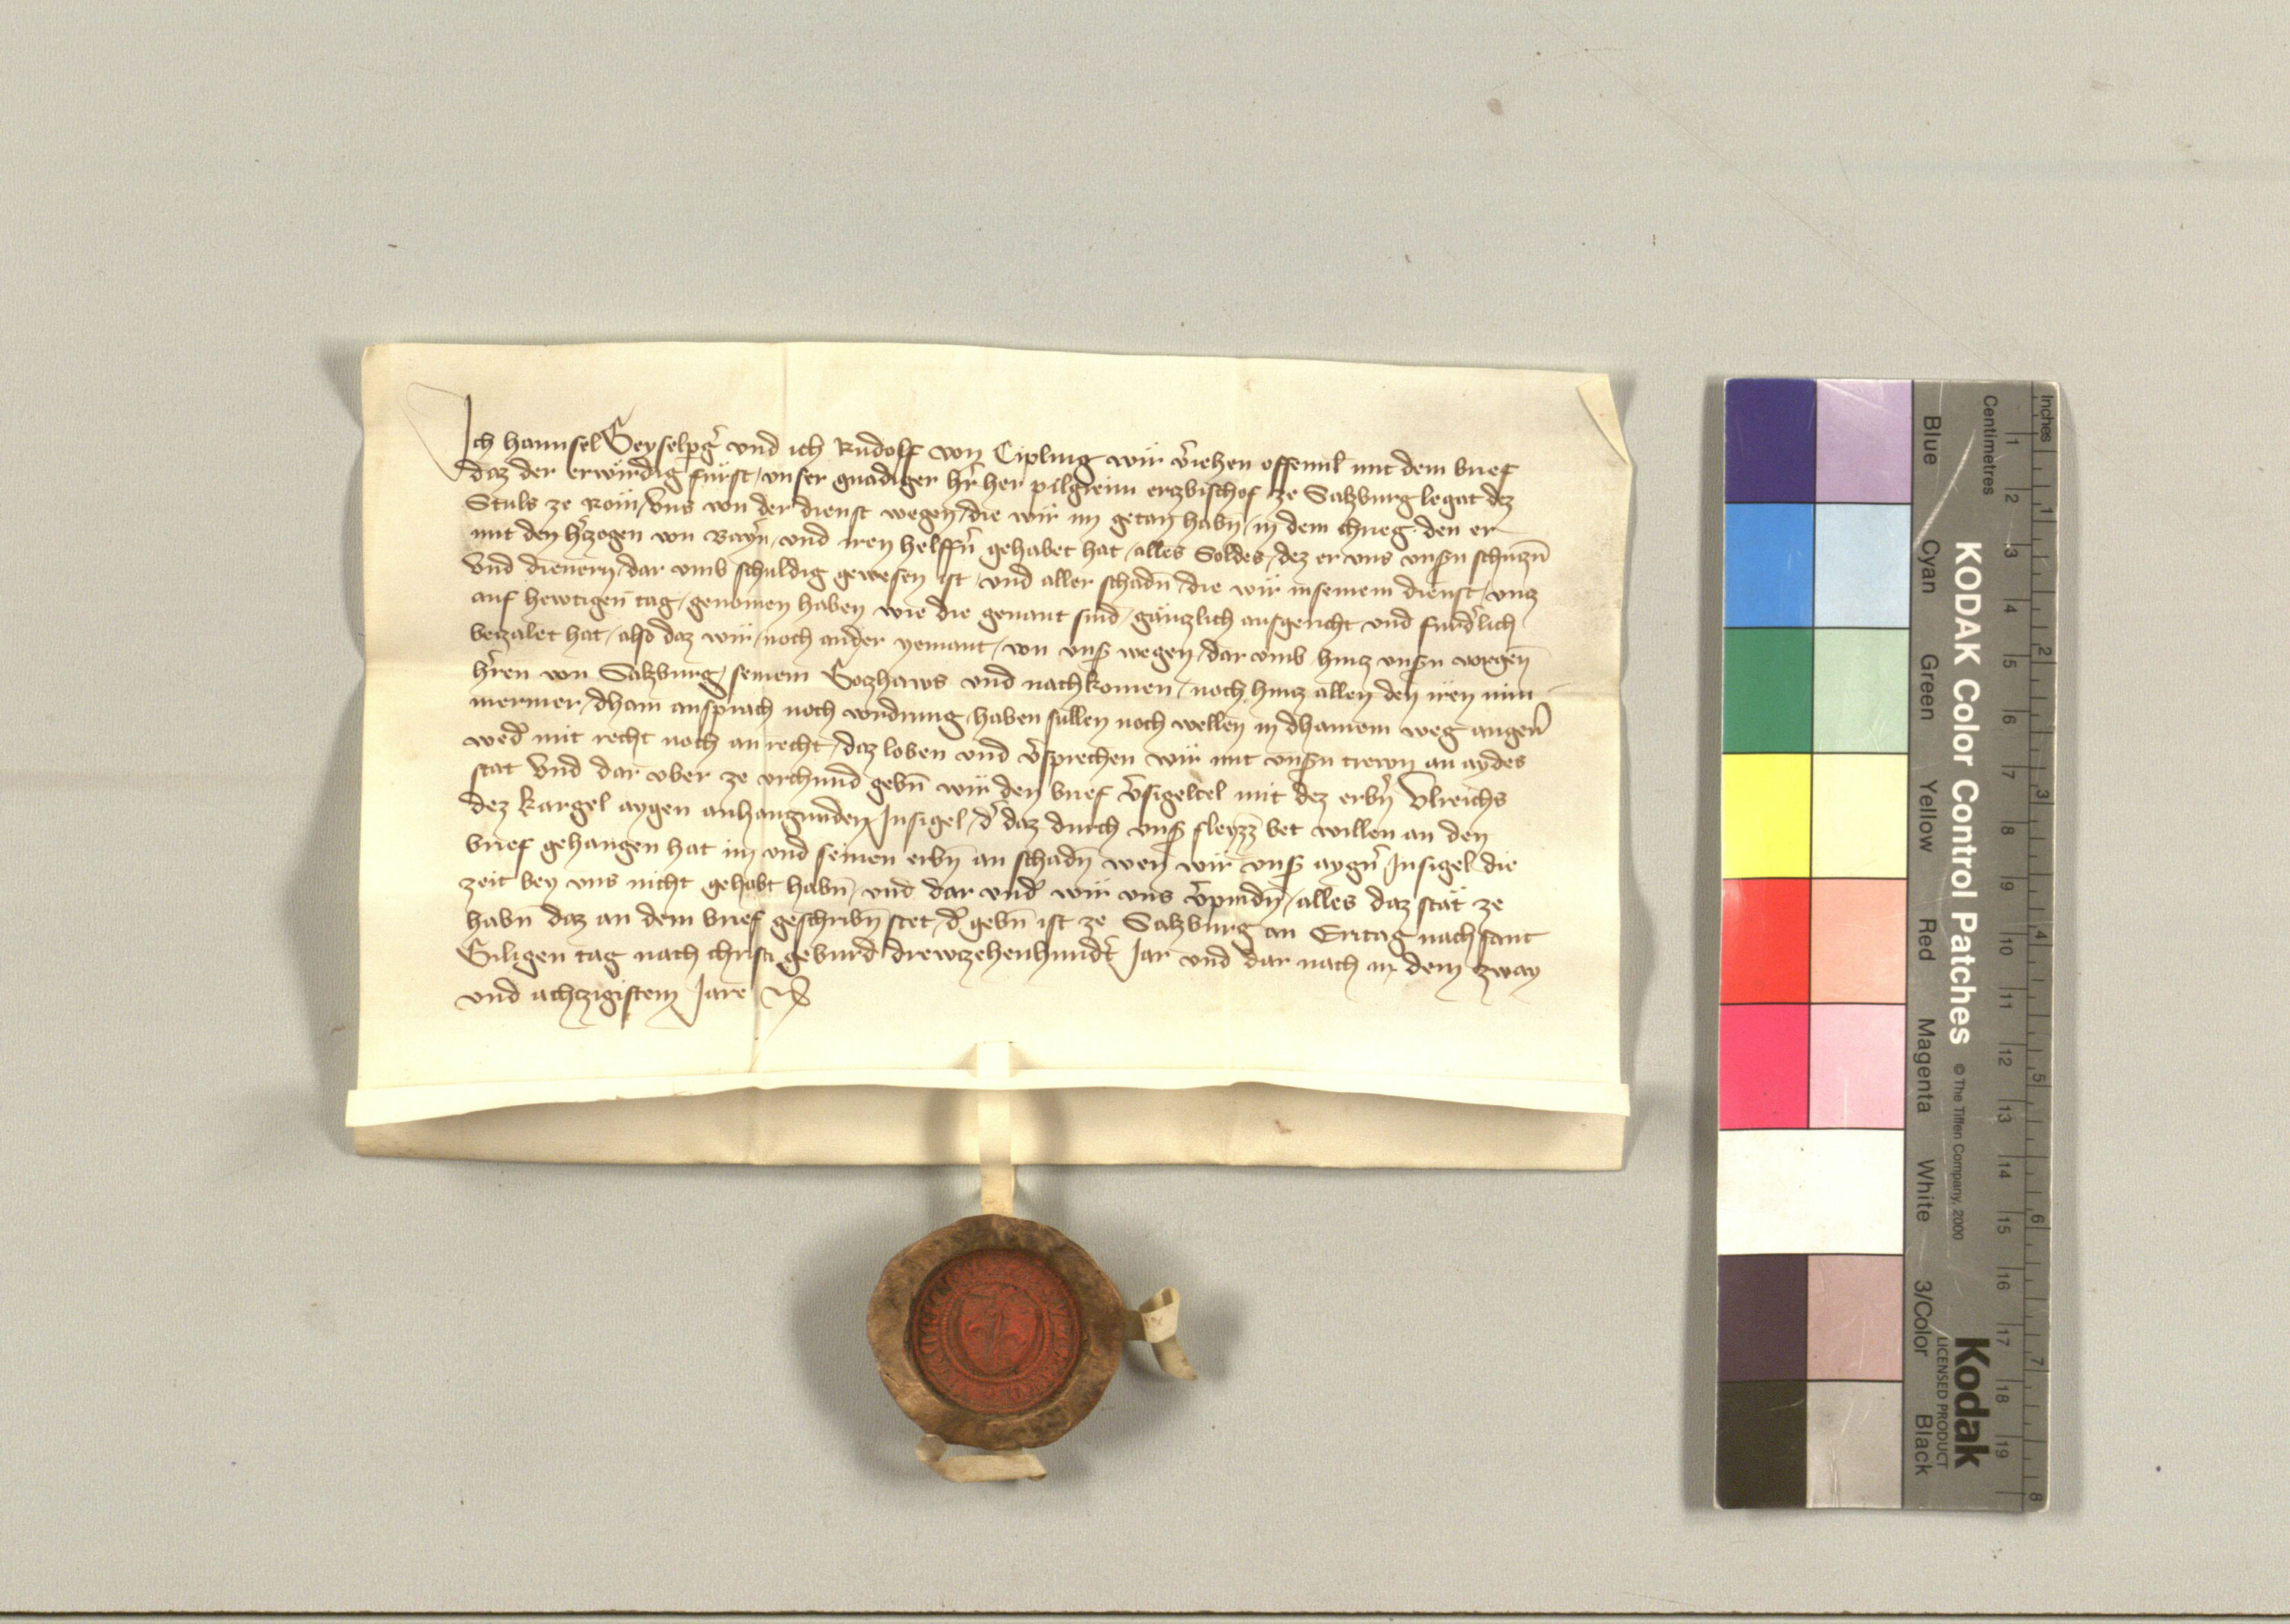 Ich Hannsel Geyselpg̉ vnd ich Rudolf von Cipling wir v̉iehen offennl̄ mit dem brief
daz der erwirdig fürst, vnser gnädiger hr̉ her pilgreim erzbischof ze Salzburg legat dez
Stuls ze Rom, vns von der dienst wegen, die wir im getan habn̄, in dem chrieg, den er
mit den h̉zogen von Bayrn̉, vnd iren helffn̉ gehabet hat, alles Soldes, dez er vns vnsn̉ schuczn̄
vnd dienern, dar vmb schuldig gewesen ist, vnd aller schadn̄, die wir in seinem dienst, vncz
auf hewtigen tag, genomen haben wie die genant sind, gänczlich ausgericht vnd funderlich
beczalet hat, also daz wir, noch ander yemant, von vnsr̉ wegen, dar vmb hincz vnsn̉ vorgen̄
hr̉en von Salzburg, seinem Gozhaws vnd nachkomen, noch hincz allen den iren nim
mermer, dhain ansprach noch vordrung, haben sullen noch wellen in dhainem weg angeủ
wed̉ mit recht noch an recht, daz loben vnd v̉sprechen wir mit vnsn̉ trewn an aydes
stat Vnd dar vber ze vrchund gebn̄ wir den brief v̉sigeltel mit dez erbn̉ Vlreichs
dez kargel aygen anhangunden Insigel, d̉ daz durch vnsr̉ fleyzz bet willen an den
brief gehangen hat im vnd seinen erbn̄ an schadn̄ wen wir vnsr̉ aygn̉ Insigel die
zeit bey vns nicht gehabt habn̄, vnd dar vnd̉ wir vns v̉pindn̄, alles daz stät ze
habn̄ daz an dem brief geschribn̄ stet, d̉ gebn̄ ist ze Salzburg an Eritag nach sant
Giligen tag nach christi geburd drewzehenhundt̉ Jar vnd dar nach in dem zway
vnd achzigistem Jare
KODAK Color Control Patches
© The Tiffen Company, 2000
Kodak
LICENSED PRODUCT
Inches 1 2 3 4 5 6 7 8
Centimetres 1 2 3 4 5 6 7 8 9 10 11 12 13 14 15 16 17 18 19
Blue Cyan Green Yellow Red Magenta White 3/Color Black